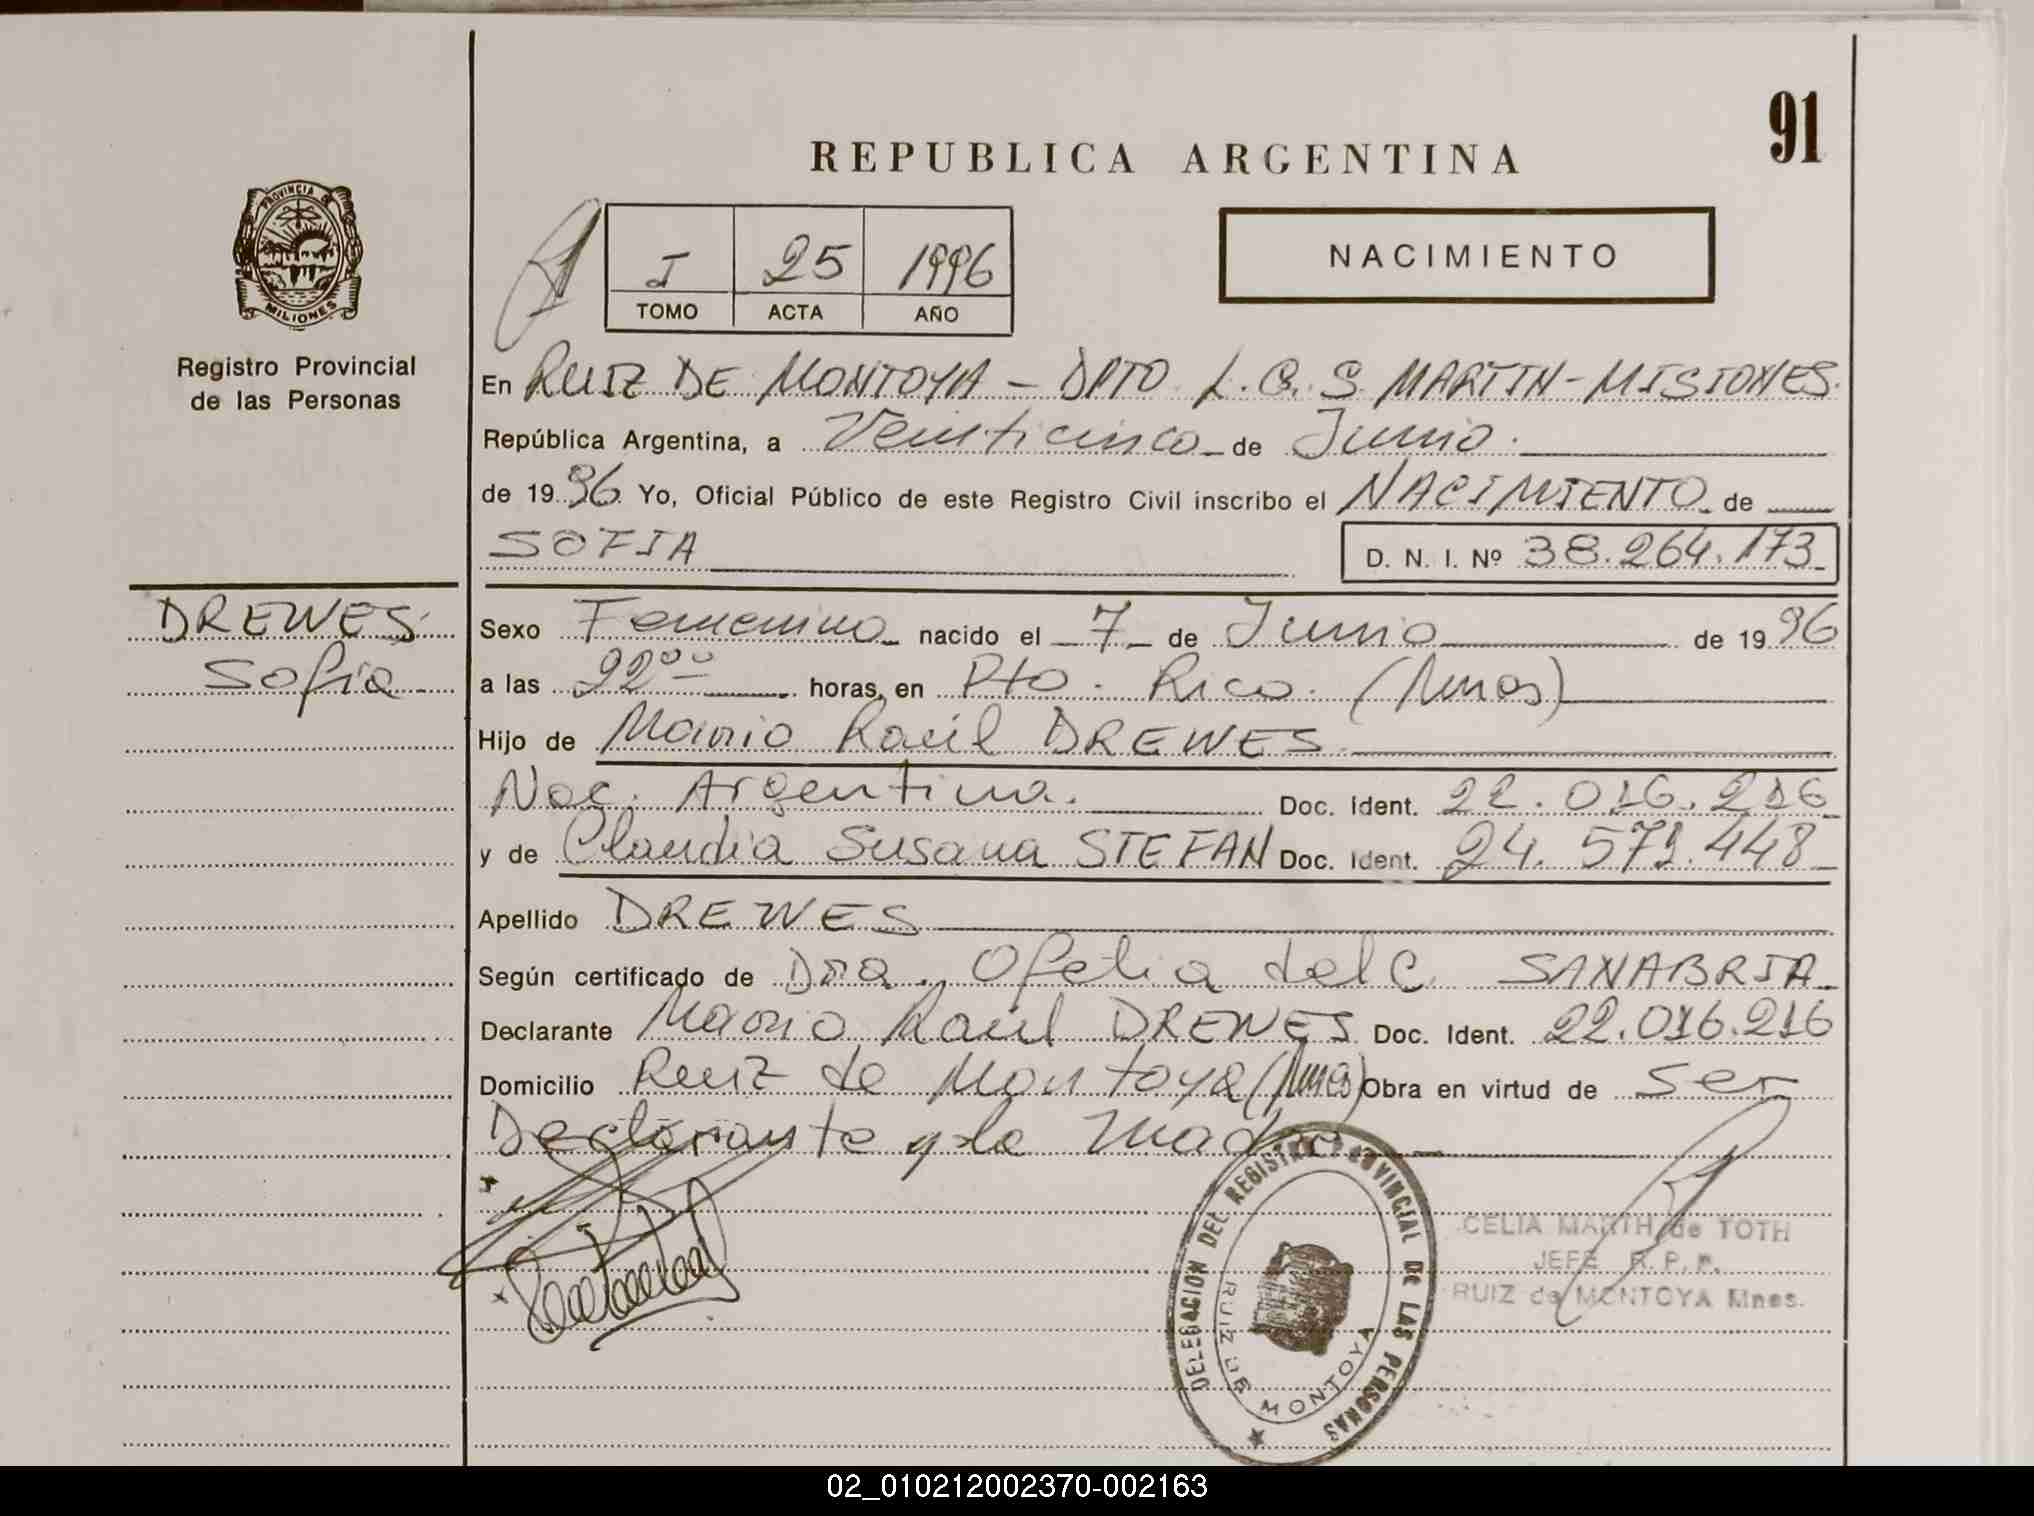 91
REPUBLICA ARGENTINA
PROVINCIA DE
MISIONES
Registro Provincial
de las Personas
I 25 1996
TOMO ACTA AÑO
NACIMIENTO
En RUIZ DE MONTOYA - DPTO L.G.S. MARTIN - MISIONES.
República Argentina, a Veinticinco de Junio.
de 1996 Yo, Oficial Público de este Registro Civil inscribo el NACIMIENTO de
SOFIA D. N. I. Nº 38.264.173
DREWES
Sofia
Sexo Femenino nacido el 7 de Junio de 1996
a las 22⁰⁰ horas, en Pto. Rico. (Mnes)
Hijo de Mario Raúl DREWES
Nac. Argentina. Doc. Ident. 22.016.216
y de Claudia Susana STEFAN Doc. Ident. 24.571.448
Apellido DREWES
Según certificado de Dra. Ofelia del C. SANABRIA
Declarante Mario Raúl DREWES Doc. Ident. 22.016.216
Domicilio Ruiz de Montoya (Mnes) Obra en virtud de ser
Declarante y la Madre
DELEGACION DEL REGISTRO PROVINCIAL DE LAS PERSONAS
RUIZ DE MONTOYA
CELIA MARTH de TOTH
JEFE R. P. P.
RUIZ de MONTOYA Mnes.
02_010212002370-002163